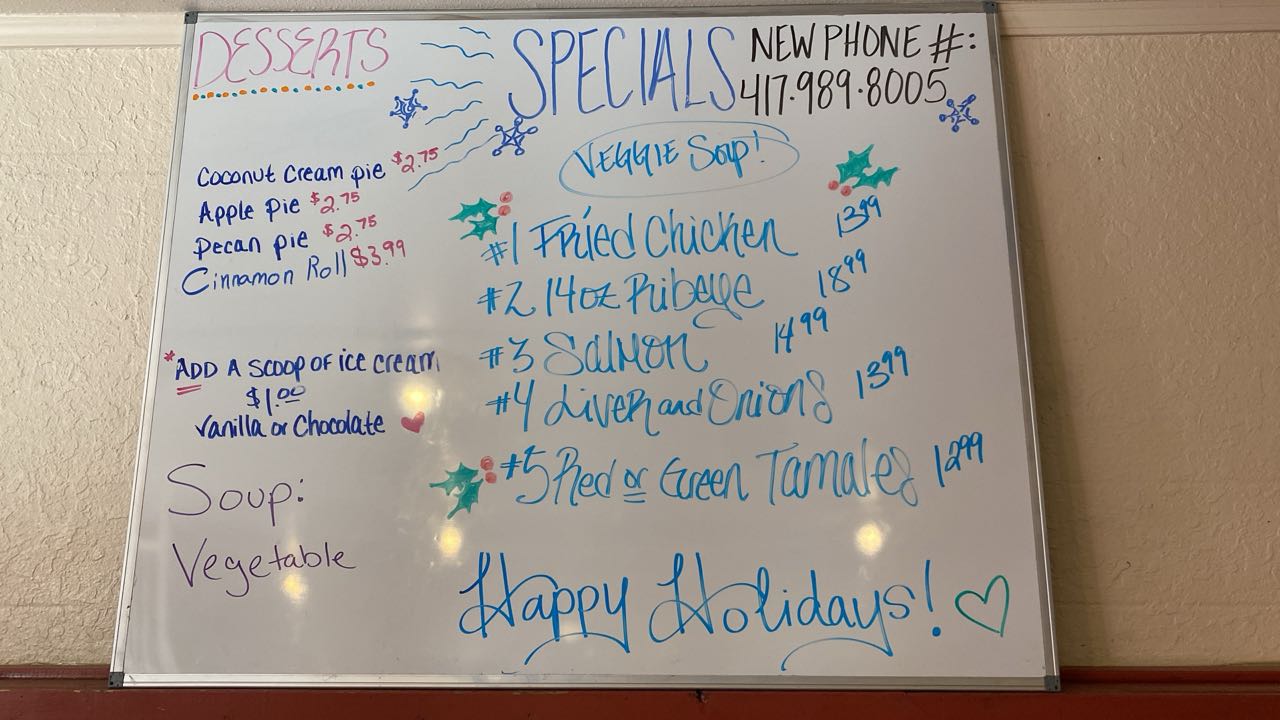 DESSERTS
Coconut Cream pie $2.75
Apple pie $2.75
Pecan pie $2.75
Cinnamon Roll $3.99
*ADD A SCOOP OF ice cream
$1.00
Vanilla or Chocolate
Soup:
Vegetable
SPECIALS
NEW PHONE #:
417.989.8005
VEGGIE Soup!
#1 Fried Chicken 13.99
#2 14oz Ribeye 18.99
#3 Salmon 14.99
#4 Liver and Onions 13.99
#5 Red or Green Tamales 12.99
Happy Holidays!